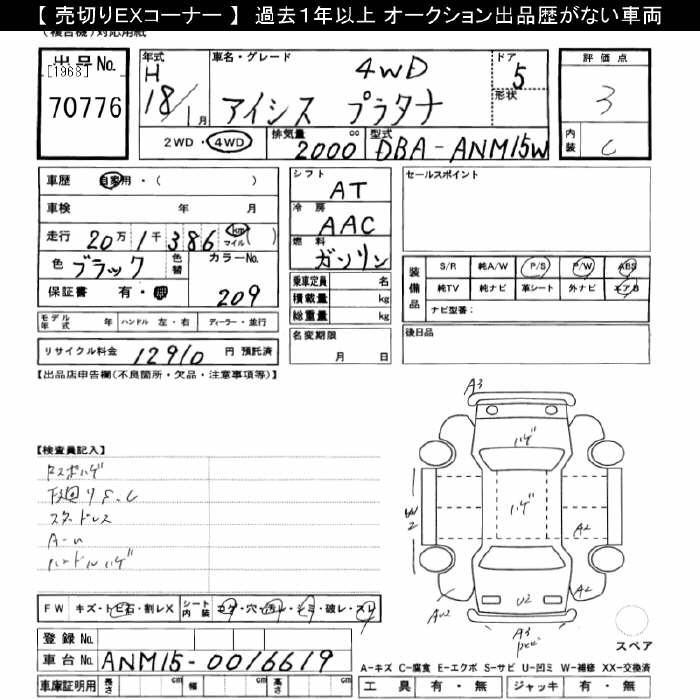 【 売切りEXコーナー 】 過去１年以上 オークション出品歴がない車両
(複合機)対応用紙
出品No.
[1968]
70776
年式 H 18/1月
車名・グレード 4WD
アイシス プラタナ
ドア 5
形状
2WD・4WD 排気量 2000 cc 型式 DBA-ANM15W
評価点 3
内装 C
車歴 自家用・( )
車検 年 月
走行 20万1千386 km マイル ( )
色 ブラック 色替 カラーNo.
保証書 有・無 209
モデル年式 年 ハンドル 左・右 ディーラー・並行
リサイクル料金 12910 円 預託済
シフト AT
冷房 AAC
燃料 ガソリン
乗車定員 名
積載量 kg
総重量 kg
名変期限
月 日
セールスポイント
装備品 S/R 純A/W P/S P/W ABS
純TV 純ナビ 革シート 外ナビ エアB
ナビ型番：
後日品
【出品店申告欄(不良箇所・欠品・注意事項等)】
【検査員記入】
下廻りS.C
スタッドレス
ハンドルハゲ
A3
ハゲ
ハゲ
W2
A2
A2
U2
AU2
A3
スペア
FW キズ・トビ石・割レX シート内装 コゲ・穴・汚レ・シミ・破レ・スレ
登録No.
車台No. ANM15-0016619
車庫証明用 長さ cm 幅 cm 高さ cm
A-キズ C-腐食 E-エクボ S-サビ U-凹ミ W-補修 XX-交換済
工具 有・無 ジャッキ 有・無